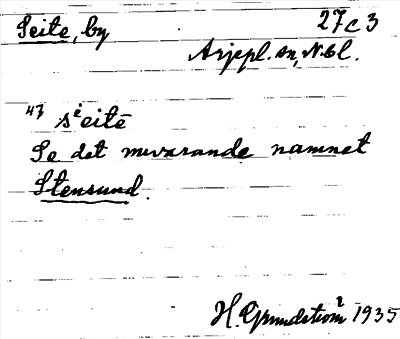 Seite, by 27c3
Arjepl. sn, N.bl.
47 sėitē
Se det nuvarande namnet
Stensund.
H. Grundström 1935